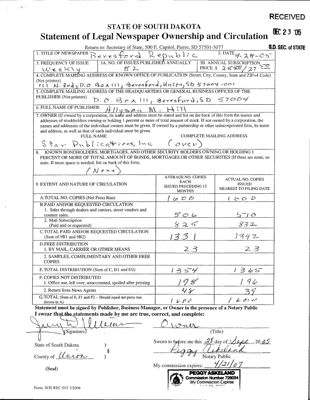 RECEIVED
DEC 23 '05
B.D. SEC OF STATE
STATE OF SOUTH DAKOTA
Statement of Legal Newspaper Ownership and Circulation
Return to: Secretary of State, 500 E. Capitol, Pierre, SD 57501-5077
1. TITLE OF NEWSPAPER Beresford Republic
2. DATE 9-28-05
3. FREQUENCY OF ISSUE Weekly
3A. NO. OF ISSUES PUBLISHED ANNUALLY
3B. ANNUAL SUBSCRIPTION PRICE $
4. COMPLETE MAILING ADDRESS OF KNOWN OFFICE OF PUBLICATION (Street, City, County, State and ZIP+4 Code) (Not printers)
Box 111, Beresford, Union, SD 57004
5. COMPLETE MAILING ADDRESS OF THE HEADQUARTERS OF GENERAL BUSINESS OFFICES OF THE PUBLISHER (Not printers)
P.O. Box 111, Beresford, SD 57004
6. FULL NAME OF PUBLISHER: Allyson M. Hill
7. OWNER (If owned by a corporation, its name and address must be stated and list on the back of this form the names and
addresses of stockholders owning or holding 1 percent or more of total amount of stock. If not owned by a corporation, the
names and addresses of the individual owners must be given. If owned by a partnership or other unincorporated firm, its name
and address, as well as that of each individual must be given.
FULL NAME COMPLETE MAILING ADDRESS
Star Publications, Inc (over)
8. KNOWN BONDHOLDERS, MORTGAGEES, AND OTHER SECURITY HOLDERS OWNING OR HOLDING 1
PERCENT OR MORE OF TOTAL AMOUNT OF BONDS, MORTGAGES OR OTHER SECURITIES (If there are none, so
state. If more space is needed, list on back of this form.
(None)
9. EXTENT AND NATURE OF CIRCULATION
AVERAGE NO. COPIES EACH ISSUED PRECEDING 12 MONTHS
ACTUAL NO. COPIES ISSUED NEAREST TO FILING DATE
A. TOTAL NO. COPIES (Net Press Run) 1600 1600
B. PAID AND/OR REQUESTED CIRCULATION
1. Sales through dealers and carriers, street vendors and counter sales. 506 510
2. Mail Subscription (Paid and or requested) 825 832
C. TOTAL PAID AND/OR REQUESTED CIRCULATION (Sum of 9B1 and 9B2) 1331 1342
D. FREE DISTRIBUTION
1. BY MAIL, CARRIER OR OTHER MEANS 23 23
2. SAMPLES, COMPLIMENTARY AND OTHER FREE COPIES
E. TOTAL DISTRIBUTION (Sum of C, D1 and D2) 1354 1365
F. COPIES NOT DISTRIBUTED
1. Office use, left over, unaccounted, spoiled after printing 198 196
2. Return from News Agents 48 39
G. TOTAL (Sum of E, F1 and F2 - Should equal net press run shown in A) 1600 1600
Statement must be signed by Publisher, Business Manager, or Owner in the presence of a Notary Public
I swear that the statements made by me are true, correct, and complete:
Owner
(Signature) (Title)
State of South Dakota )
§
County of Union )
Sworn to before me this day of Sept. 2005
Peggy Askeland
Notary Public
(Seal)
My commission expires 4/21/07
PEGGY ASKELAND
My Commission Expires
Form: SOS REC 051 7/2004